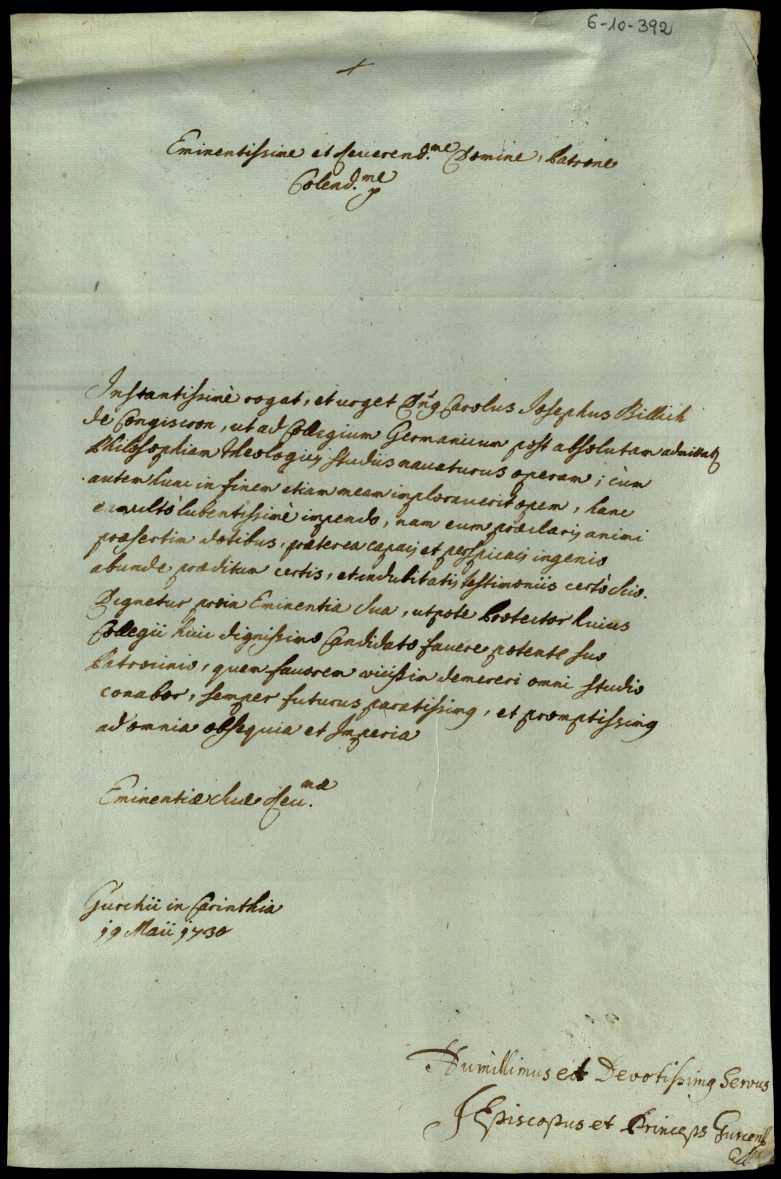 6-10-392
+
Eminentissime et Reverend.me Domine, Patrone
Colend.me
Instantissimè rogat, et urget Dng Carolus Josephus Billich
de Congiscron, ut ad Collegium Germanicum post absolutam admittatz
Philosophiam Theologicis studiis navaturus operam; cùm
autem hunc in finem etiam meam imploraverit opem, hanc
multò lubentissimè impendo, nam eum præclaris animi
præsertim dotibus, præterea capacis et perspicacis ingenio
abunde præditum certis, et indubitatis testimoniis certò scio.
Dignetur proin Eminentia Sua, utpote Protector huius
Collegii huic dignissimo Candidato favere potente suo
Patrocinio, quem favorem vicissim demereri omni studio
conabor, semper futurus paratissimg, et promptissimg
ad omnia obsequia et Imperia
Eminentiæ Suæ Reu.mæ
Gurchii in Carinthia
19 Maii 1730
Humillimus et Devotissimg Servus
J Episcopus et Princeps Gurcens